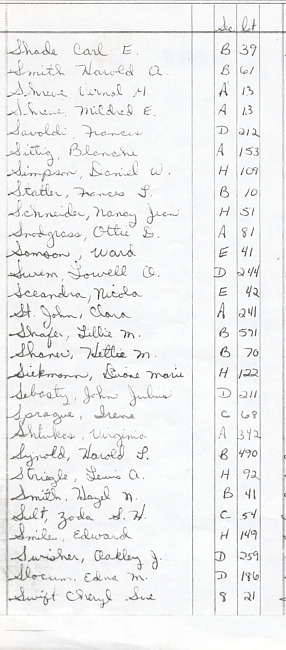 Sec lot
Shade Carl E. B 39
Smith Harold A. B 61
Shreve Vernol M A 13
Shreve, Mildred E. A 13
Savoldi, Frances D 212
Sittig, Blanche A 153
Simpson, Daniel W. H 109
Statler, Frances L. B 10
Schneider, Nancy Jean H 51
Snodgrass, Ottie D. A 81
Samson, Ward E 41
Swem Lowell O. D 244
Sceandra, Nicola E 42
St. John, Clara A 241
Shafer, Lillie M. B 571
Shaner, Hettie M. B 70
Siekmann, Diane Marie H 122
Sebasty, John Julius D 211
Sprague, Irene C 68
Shtukas, Virginia A 342
Synold, Harold L. B 490
Strigle, Lewis A. H 92
Smith, Hazel N. B 41
Sult, Zoda S. H. C 54
Smiler, Edward H 149
Swisher, Oakley J. D 259
Slocum, Edna M. D 186
Swift Cheryl Sue 8 21